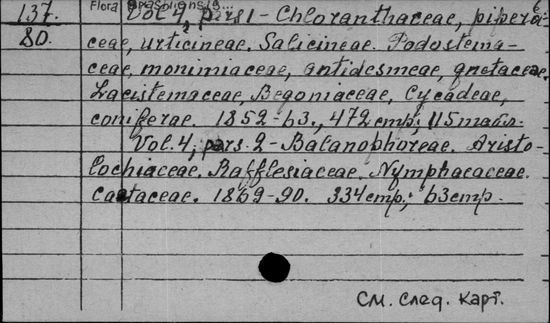 137.
80.
Flora brasoliensis...
Vol. 4, pars 1 - Chloranthaceae, piperā-
ceae, urticineae. Salicineae. Podostema-
ceae, monimiaceae, antidesmeae, gnetaceae.
Lacistemaceae, Begoniaceae, Cycadeae,
coniferae. 1852-63., 472 стр.; 115 табл.
Vol. 4, pars. 2 - Balanophoreae. Aristo-
lochiaceae. Rafflesiaceae. Nymphaeaceae.
cactaceae. 1869-90. 334 стр.; 63 стр.
См. след. карт.